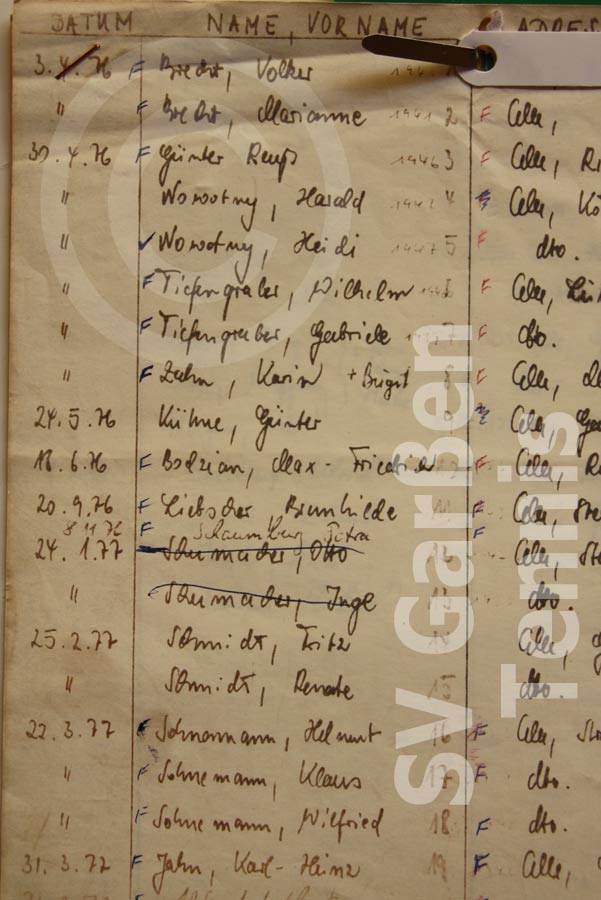 DATUM NAME, VORNAME ADRES
3.4.76 F Brecht, Volker
" F Brecht, Marianne 1941 2 F Celle,
30.4.76 F Günter 1946 3 F Celle,
" Nowotny, Harald 4 Celle, Kö
" Nowotny, Heidi 5 F dto.
" F Tiefengraber, Wilhelm F Celle,
" F Tiefengraber, Gabriele 7 F dto.
" F Zahm, Karin + Birgit 8 F Celle,
24.5.76 Kühne, Günter 9 Celle,
18.6.76 F Bodzian, Max-Friedrich F Celle,
20.9.76 F Liebscher, Brunhilde 11 F Celle, Ste
8.11.76 F Schaumburg, Petra F
24.1.77 Schumacher, Otto 12 Celle, Ste
" Schumacher, Inge 13 dto.
25.2.77 Schmidt, Fritz 14 Celle,
" Schmidt, Renate 15 dto.
22.3.77 F Helmut 16 F Celle,
" F Sohnemann, Klaus 17 F dto.
" F Sohnemann, Wilfried 18 F dto.
31.3.77 F Jahn, Karl-Heinz 19 F Celle,
©
SV Garßen
Tennis